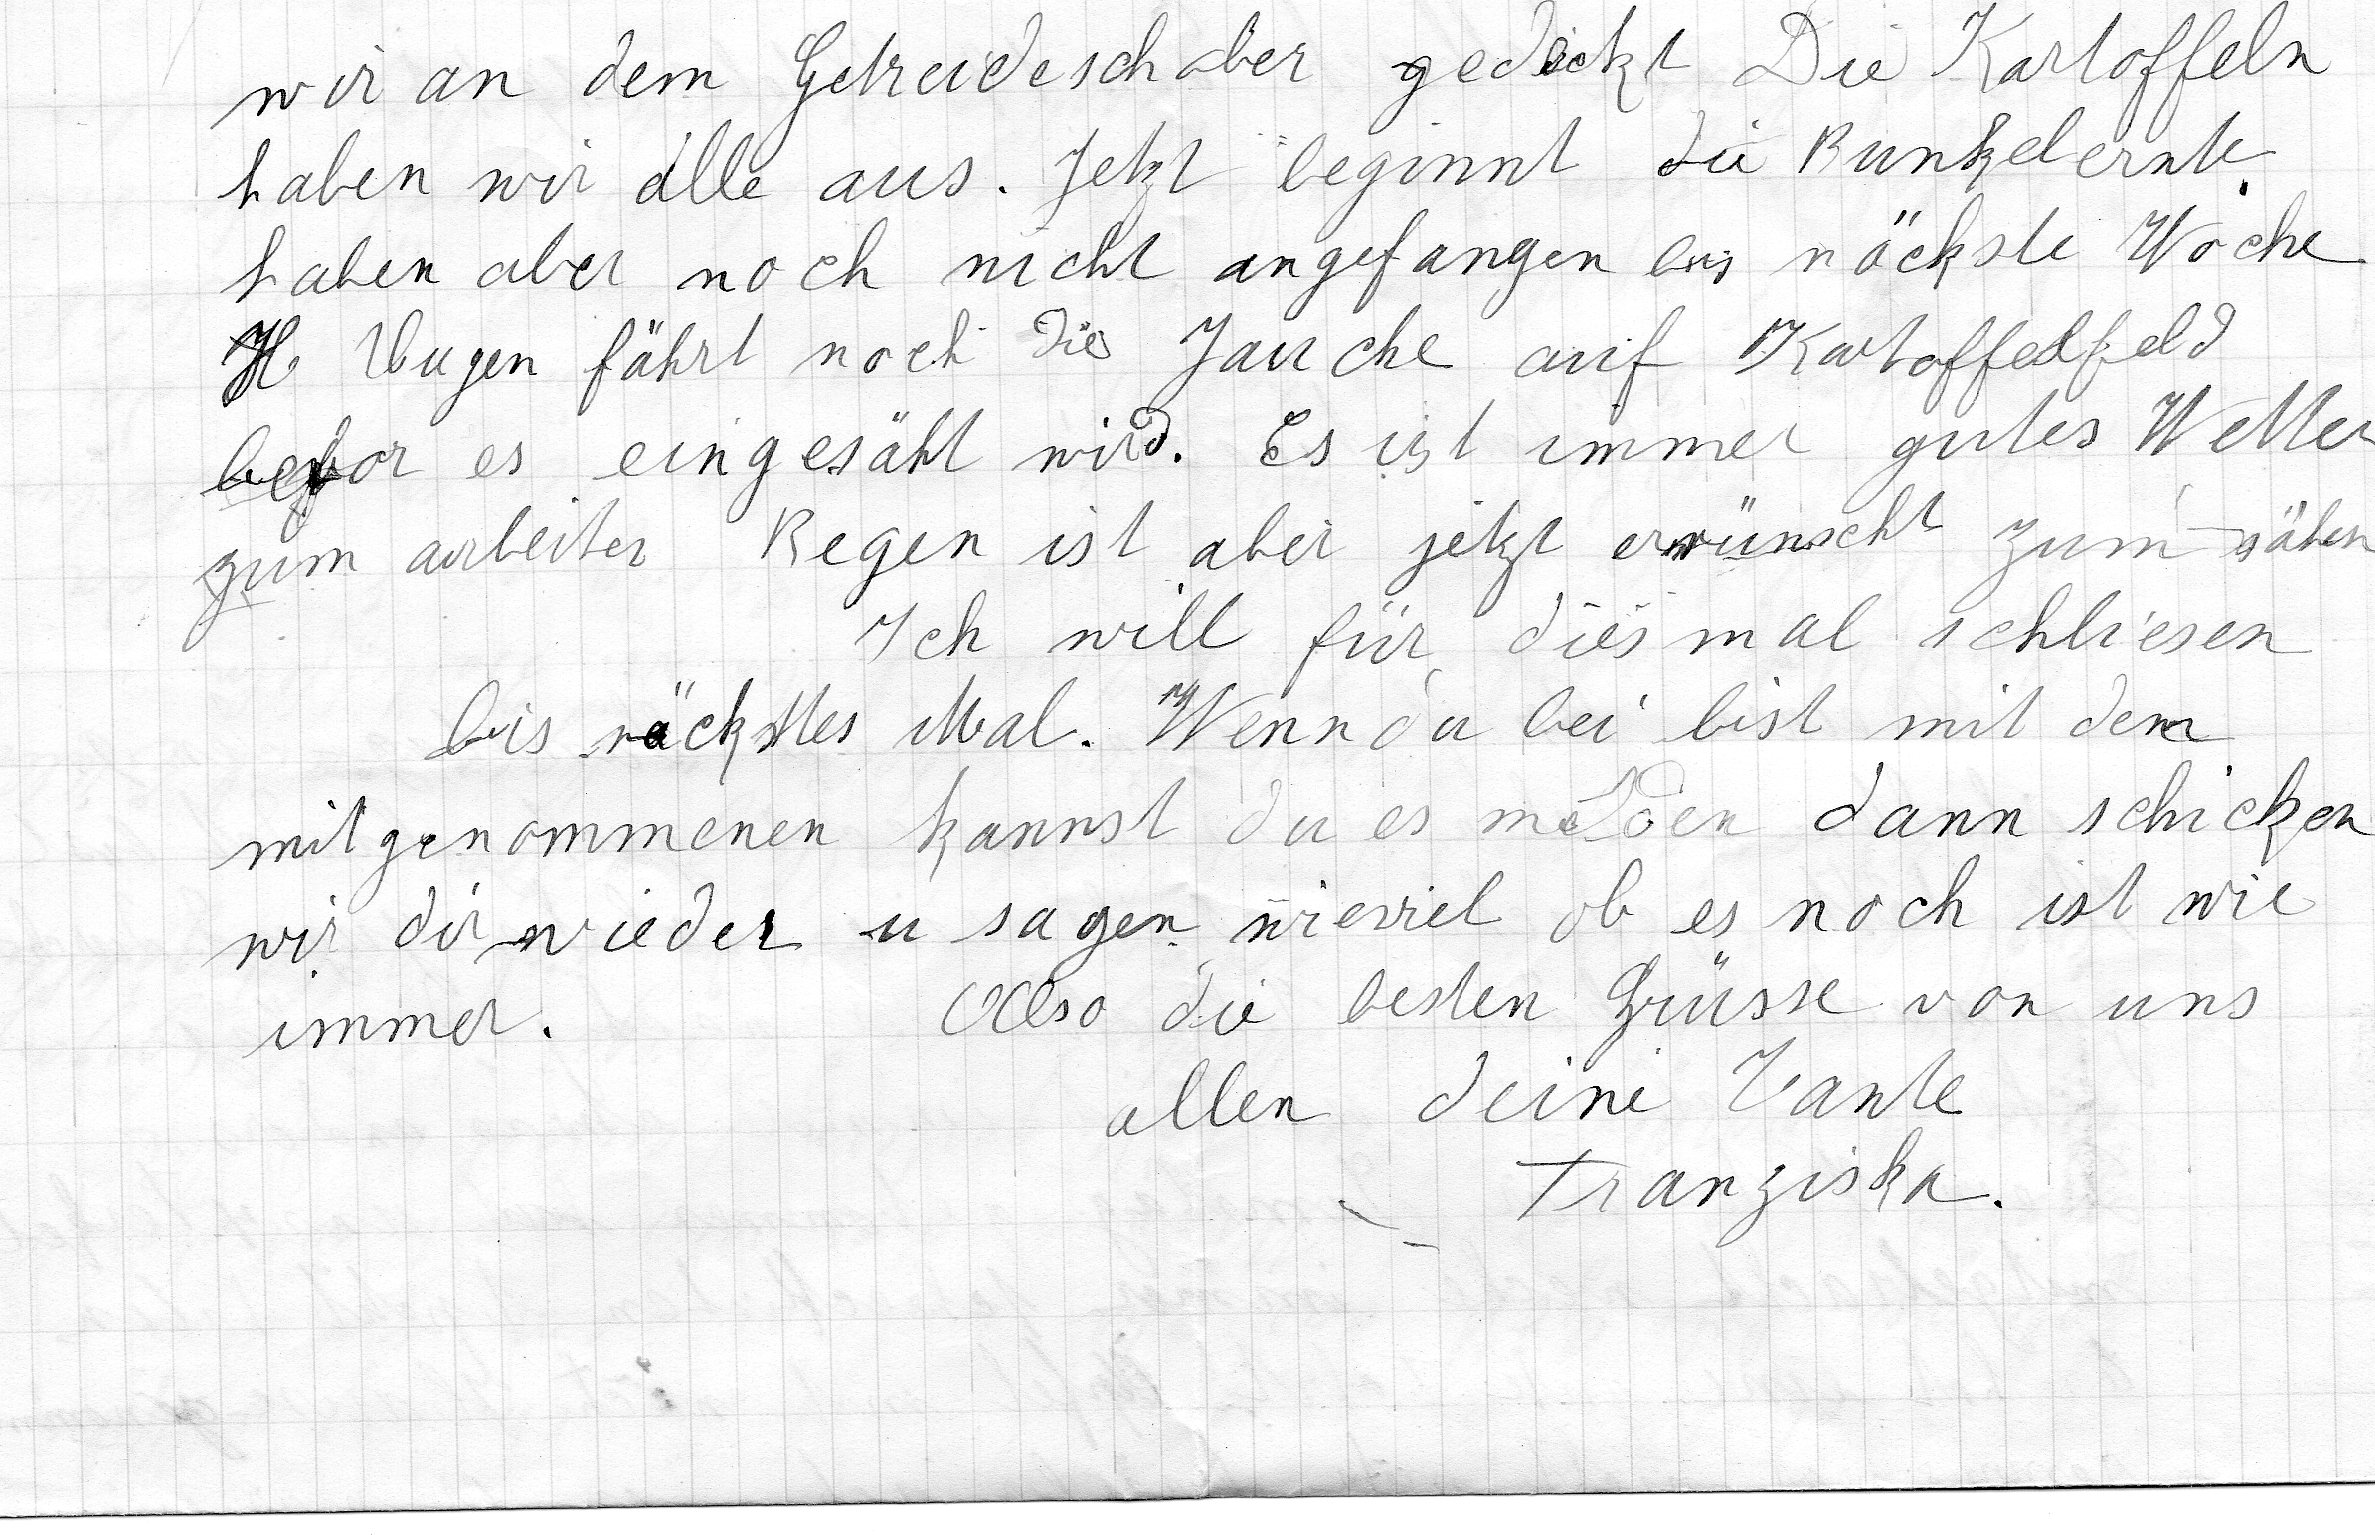 wir an dem Getreideschober gedeckt Die Kartoffeln
haben wir alle aus. Jetzt beginnt die Runkelernte.
haben aber noch nicht angefangen bis näckste Woche
H. fährt noch die Jauche auf Kartoffelfeld
bevor es eingesäht wird. Es ist immer gutes Wetter
zum arbeiten Regen ist aber jetzt erwünscht zum sähen
Ich will für diesmal schliesen
bis näckstes Mal. Wenn du bei bist mit dem
mitgenommenen kannst du es melden dann schicken
wir dir wieder u sagen wieviel ob es noch ist wie
immer. Also die besten Grüsse von uns
allen deine Tante
Franziska.